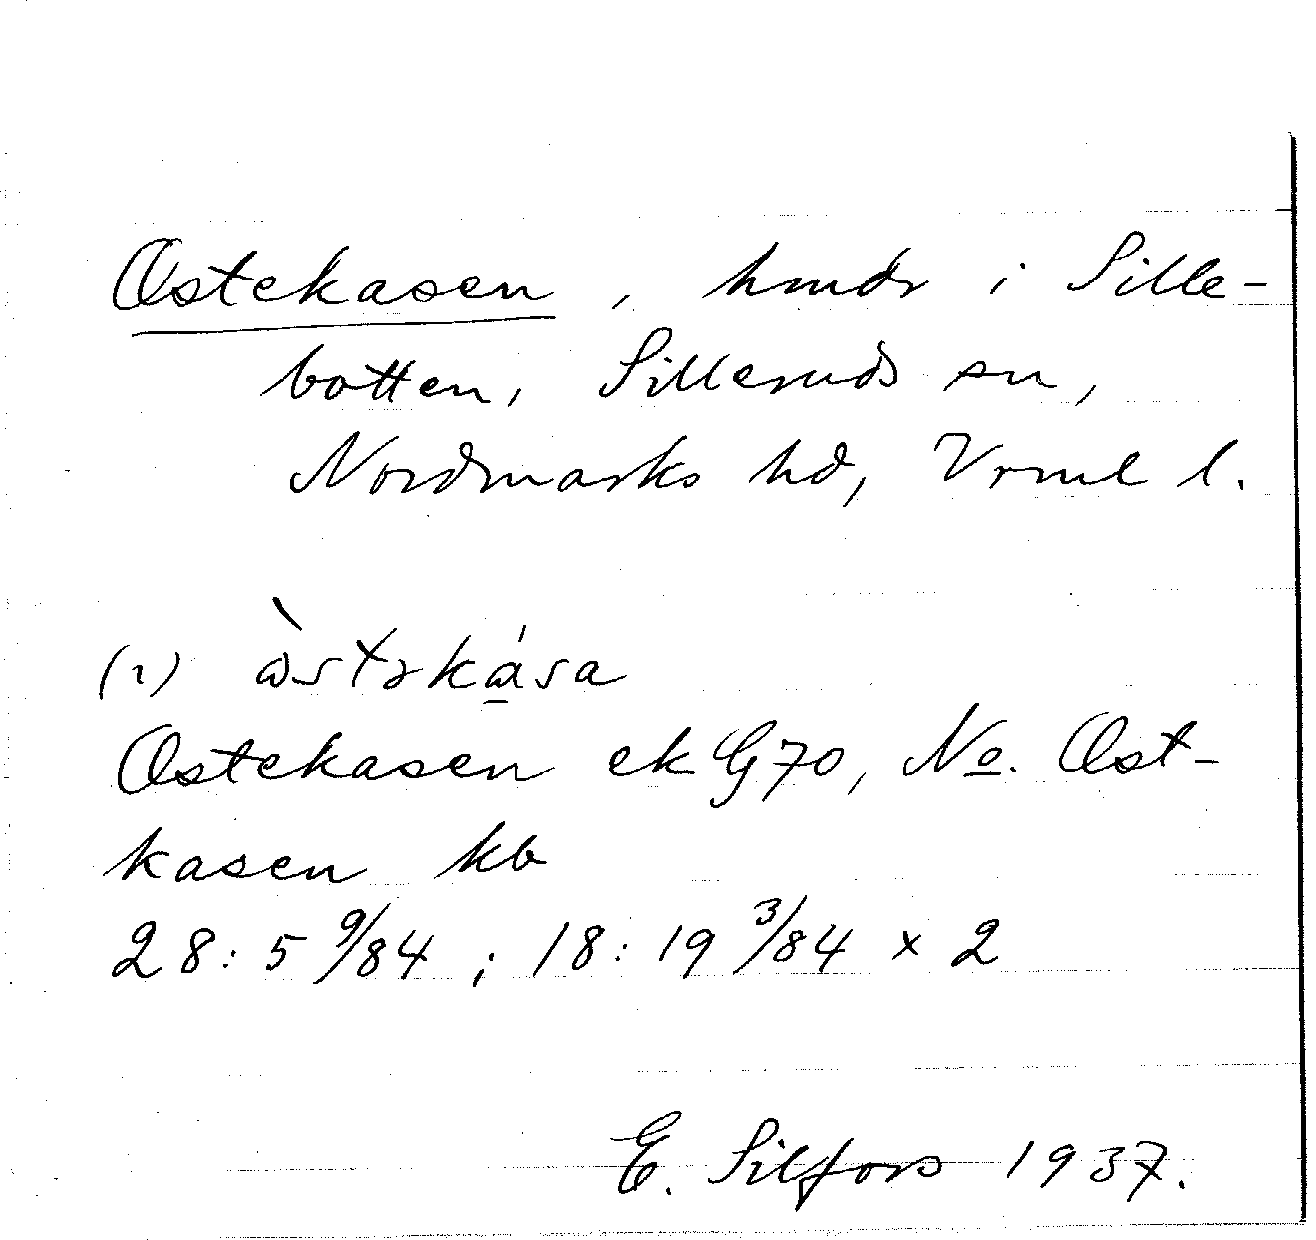 Ostekasen, hmdr i Sille-
botten, Silleruds sn,
Nordmarks hd, Vrml l.
(1)
Ostekasen ek G70, No. Ost-
kasen kb
28:5 9/84; 18:19 3/84 × 2
E. Silfors 1937.